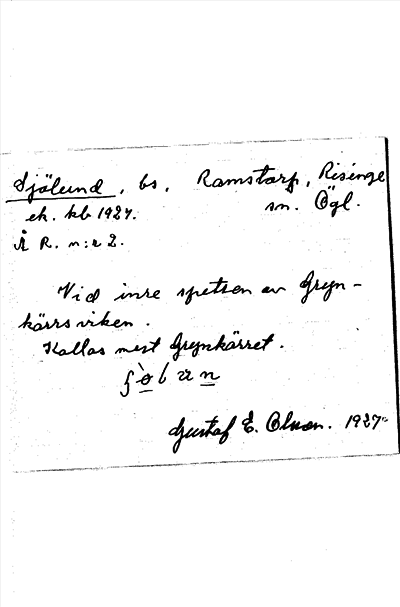 Sjölund, bs, Ramstorp, Risinge
ek. kb 1927. sn. Ögl.
Å R. n:r 2.
Vid inre spetsen av Gryn-
kärrsviken.
Kallas mest Grynkärret.
Gustaf E. Olson. 1927